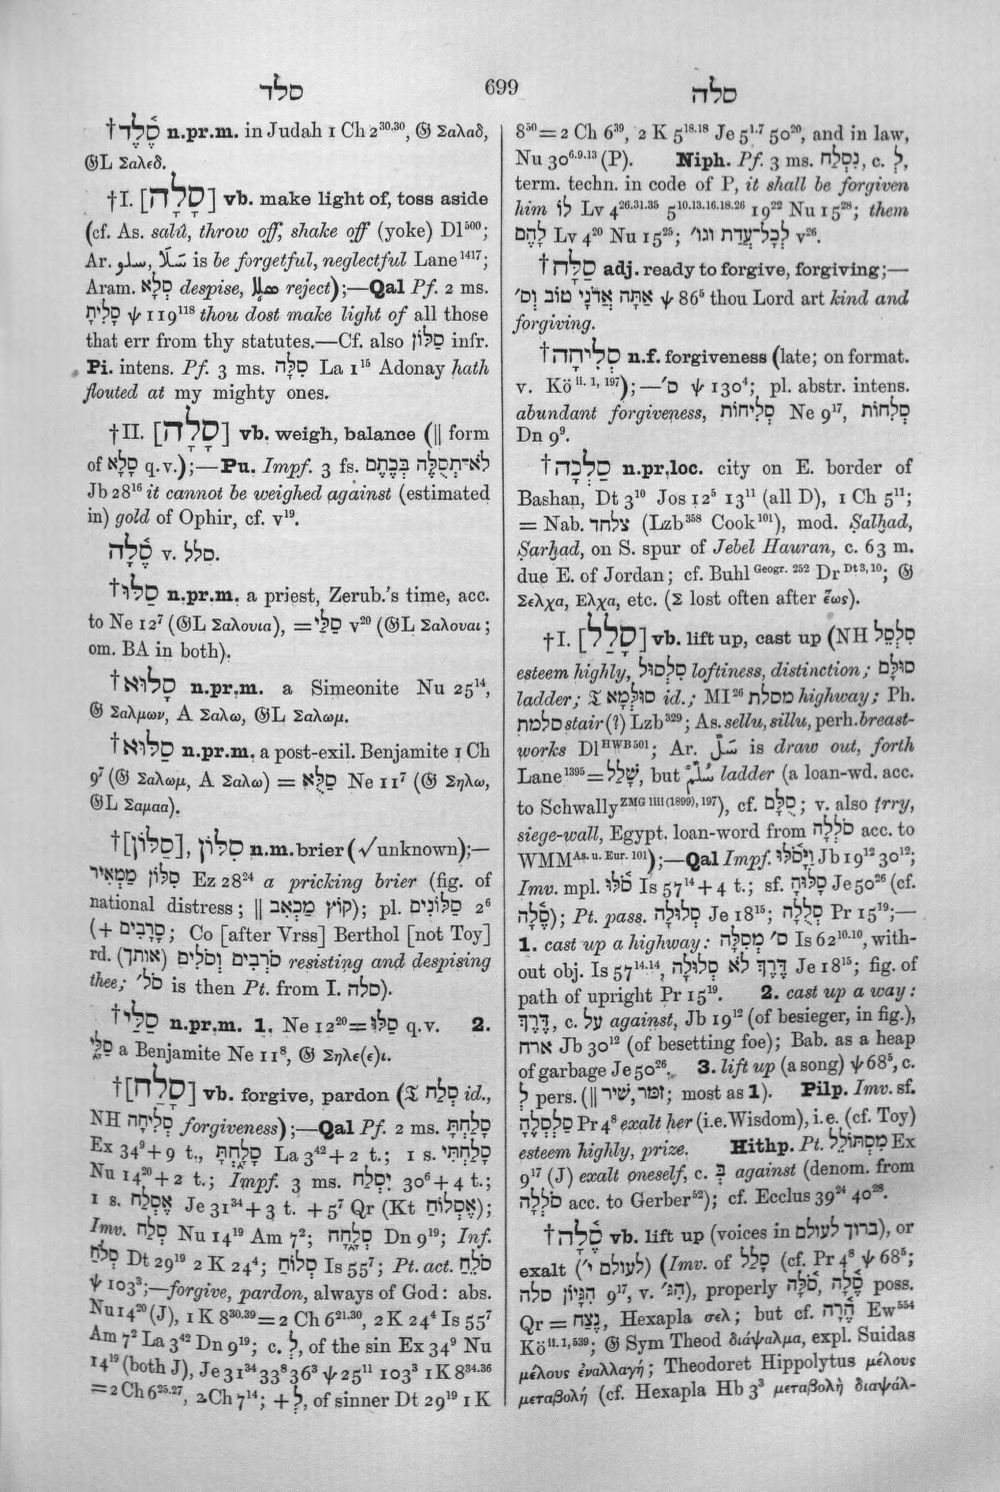 סלד
699
סלה
†סֶ֫לֶד n.pr.m. in Judah 1 Ch 2³⁰·³⁰, 𝔊 Σαλαδ,
𝔊L Σαλεδ.
†I. [סָלָה] vb. make light of, toss aside
(cf. As. salû, throw off, shake off (yoke) Dl⁵⁰⁰;
Ar. is be forgetful, neglectful Lane¹⁴¹⁷;
Aram. סְלָא despise, reject);—Qal Pf. 2 ms.
סָלִיתָ ψ 119¹¹⁸ thou dost make light of all those
that err from thy statutes.—Cf. also סִלּוֹן infr.
Pi. intens. Pf. 3 ms. סִלָּה La 1¹⁵ Adonay hath
flouted at my mighty ones.
†II. [סָלָה] vb. weigh, balance (‖ form
of סָלָא q.v.);—Pu. Impf. 3 fs. לֹא־תְסֻלֶּה בְּכֶתֶם
Jb 28¹⁶ it cannot be weighed against (estimated
in) gold of Ophir, cf. v¹⁹.
סֶ֫לָה v. סלל.
†סַלּוּ n.pr.m. a priest, Zerub.'s time, acc.
to Ne 12⁷ (𝔊L Σαλουια), = סַלַּי v²⁰ (𝔊L Σαλουαι;
om. BA in both).
†סָלוּא n.pr.m. a Simeonite Nu 25¹⁴,
𝔊 Σαλμων, A Σαλω, 𝔊L Σαλωμ.
†סַלּוּא n.pr.m. a post-exil. Benjamite 1 Ch
9⁷ (𝔊 Σαλωμ, A Σαλω) = סַלֻּא Ne 11⁷ (𝔊 Σηλω,
𝔊L Σαμαα).
†[סַלּוֹן], סִלּוֹן n.m. brier (√unknown);—
סִלּוֹן מַמְאִיר Ez 28²⁴ a pricking brier (fig. of
national distress; ‖ קוֹץ מַכְאִב); pl. סַלּוֹנִים 2⁶
(+ סָרָבִים; Co [after Vrss] Berthol [not Toy]
rd. (אוֹתך) סֹרְבִים וְסֹלִים resisting and despising
thee; סֹל׳ is then Pt. from I. סלה).
†סַלַּי n.pr.m. 1. Ne 12²⁰ = סַלּוּ q.v. 2.
סַלַּי a Benjamite Ne 11⁸, 𝔊 Σηλε(ε)ι.
†[סָלַח] vb. forgive, pardon (𝔗 סְלַח id.,
NH סְלִיחָה forgiveness);—Qal Pf. 2 ms. סָלַחְתָּ
Ex 34⁹ + 9 t., סָלָחְתָּ La 3⁴² + 2 t.; 1 s. סָלַחְתִּי
Nu 14²⁰ + 2 t.; Impf. 3 ms. יִסְלַח 30⁶ + 4 t.;
1 s. אֶסְלַח Je 31³⁴ + 3 t. + 5⁷ Qr (Kt אֶסְלוֹחַ);
Imv. סְלַח Nu 14¹⁹ Am 7²; סְלָחָה Dn 9¹⁹; Inf.
סְלֹחַ Dt 29¹⁹ 2 K 24⁴; סְלוֹחַ Is 55⁷; Pt. act. סֹלֵחַ
ψ 103³;—forgive, pardon, always of God: abs.
Nu 14²⁰ (J), 1 K 8³⁰·³⁹ = 2 Ch 6²¹·³⁰, 2 K 24⁴ Is 55⁷
Am 7² La 3⁴² Dn 9¹⁹; c. לְ, of the sin Ex 34⁹ Nu
14¹⁹ (both J), Je 31³⁴ 33⁸ 36³ ψ 25¹¹ 103³ 1 K 8³⁴·³⁶
= 2 Ch 6²⁵·²⁷, 2 Ch 7¹⁴; + לְ, of sinner Dt 29¹⁹ 1 K
8⁵⁰ = 2 Ch 6³⁹, 2 K 5¹⁸·¹⁸ Je 5¹·⁷ 50²⁰, and in law,
Nu 30⁶·⁹·¹³ (P). Niph. Pf. 3 ms. נִסְלַח, c. לְ,
term. techn. in code of P, it shall be forgiven
him לוֹ Lv 4²⁶·³¹·³⁵ 5¹⁰·¹³·¹⁶·¹⁸·²⁶ 19²² Nu 15²⁸; them
לָהֶם Lv 4²⁰ Nu 15²⁵; לְכָל־עֲדַת וגו׳ v²⁶.
†סַלָּח adj. ready to forgive, forgiving;—
אַתָּה אֲדֹנָי טוֹב וְס׳ ψ 86⁵ thou Lord art kind and
forgiving.
†סְלִיחָה n.f. forgiveness (late; on format.
v. Kö ⁱⁱ·¹,¹⁹⁷);—ס׳ ψ 130⁴; pl. abstr. intens.
abundant forgiveness, סְלִיחוֹת Ne 9¹⁷, סְלִחוֹת
Dn 9⁹.
†סַלְכָה n.pr.loc. city on E. border of
Bashan, Dt 3¹⁰ Jos 12⁵ 13¹¹ (all D), 1 Ch 5¹¹;
= Nab. צלחד (Lzb³⁵⁸ Cook¹⁰¹), mod. Ṣalḫad,
Ṣarḫad, on S. spur of Jebel Hauran, c. 63 m.
due E. of Jordan; cf. Buhl Geogr. 252 Dr Dt 3, 10; 𝔊
Σελχα, Ελχα, etc. (Σ lost often after ἕως).
†I. [סָלַל] vb. lift up, cast up (NH סִלְסֵל
esteem highly, סִלְסוּל loftiness, distinction; סוּלָּם
ladder; 𝔗 סוּלְּמָא id.; MI²⁶ מסלת highway; Ph.
סלמת stair (?) Lzb³²⁹; As. sellu, sillu, perh. breast-
works Dl HWB 501; Ar. سَلَّ is draw out, forth
Lane¹³⁹⁵ = שָׁלַל, but سُلَّم ladder (a loan-wd. acc.
to Schwally ZMG liii (1899), 197), cf. סֻלָּם; v. also ṯrry,
siege-wall, Egypt. loan-word from סֹלְלָה acc. to
WMM As. u. Eur. 101);—Qal Impf. וַיָּסֹלּוּ Jb 19¹² 30¹²;
Imv. mpl. סֹלּוּ Is 57¹⁴ + 4 t.; sf. סָלּוּהָ Je 50²⁶ (cf.
סֶ֫לָה); Pt. pass. סְלוּלָה Je 18¹⁵; סְלֻלָה Pr 15¹⁹;—
1. cast up a highway: ס׳ מְסִלָּה Is 62¹⁰·¹⁰, with-
out obj. Is 57¹⁴·¹⁴, דֶּרֶךְ לֹא סְלוּלָה Je 18¹⁵; fig. of
path of upright Pr 15¹⁹. 2. cast up a way:
דֶּרֶךְ, c. עַל against, Jb 19¹² (of besieger, in fig.),
ארח Jb 30¹² (of besetting foe); Bab. as a heap
of garbage Je 50²⁶. 3. lift up (a song) ψ 68⁵, c.
לְ pers. (‖ זמר, שׁיר; most as 1). Pilp. Imv. sf.
סַלְסְלֶהָ Pr 4⁸ exalt her (i.e. Wisdom), i.e. (cf. Toy)
esteem highly, prize. Hithp. Pt. מִסְתּוֹלֵל Ex
9¹⁷ (J) exalt oneself, c. בְּ against (denom. from
סֹלְלָה acc. to Gerber⁵²); cf. Ecclus 39²⁴ 40²⁸.
†סֶ֫לָה vb. lift up (voices in ברוך לעולם), or
exalt (לעולם י׳) (Imv. of סָלַל (cf. Pr 4⁸ ψ 68⁵;
הִגָּיוֹן סלה 9¹⁷, v. הִגּ׳), properly סֹ֫לָּה, סֻ֫לָּה poss.
Qr = נֶצַח, Hexapla σελ; but cf. הָ֫רָה Ew⁵⁵⁴
Kö ⁱⁱ·¹,⁵³⁹; 𝔊 Sym Theod διάψαλμα, expl. Suidas
μέλους ἐναλλαγή; Theodoret Hippolytus μέλους
μεταβολή (cf. Hexapla Hb 3³ μεταβολὴ διαψάλ-